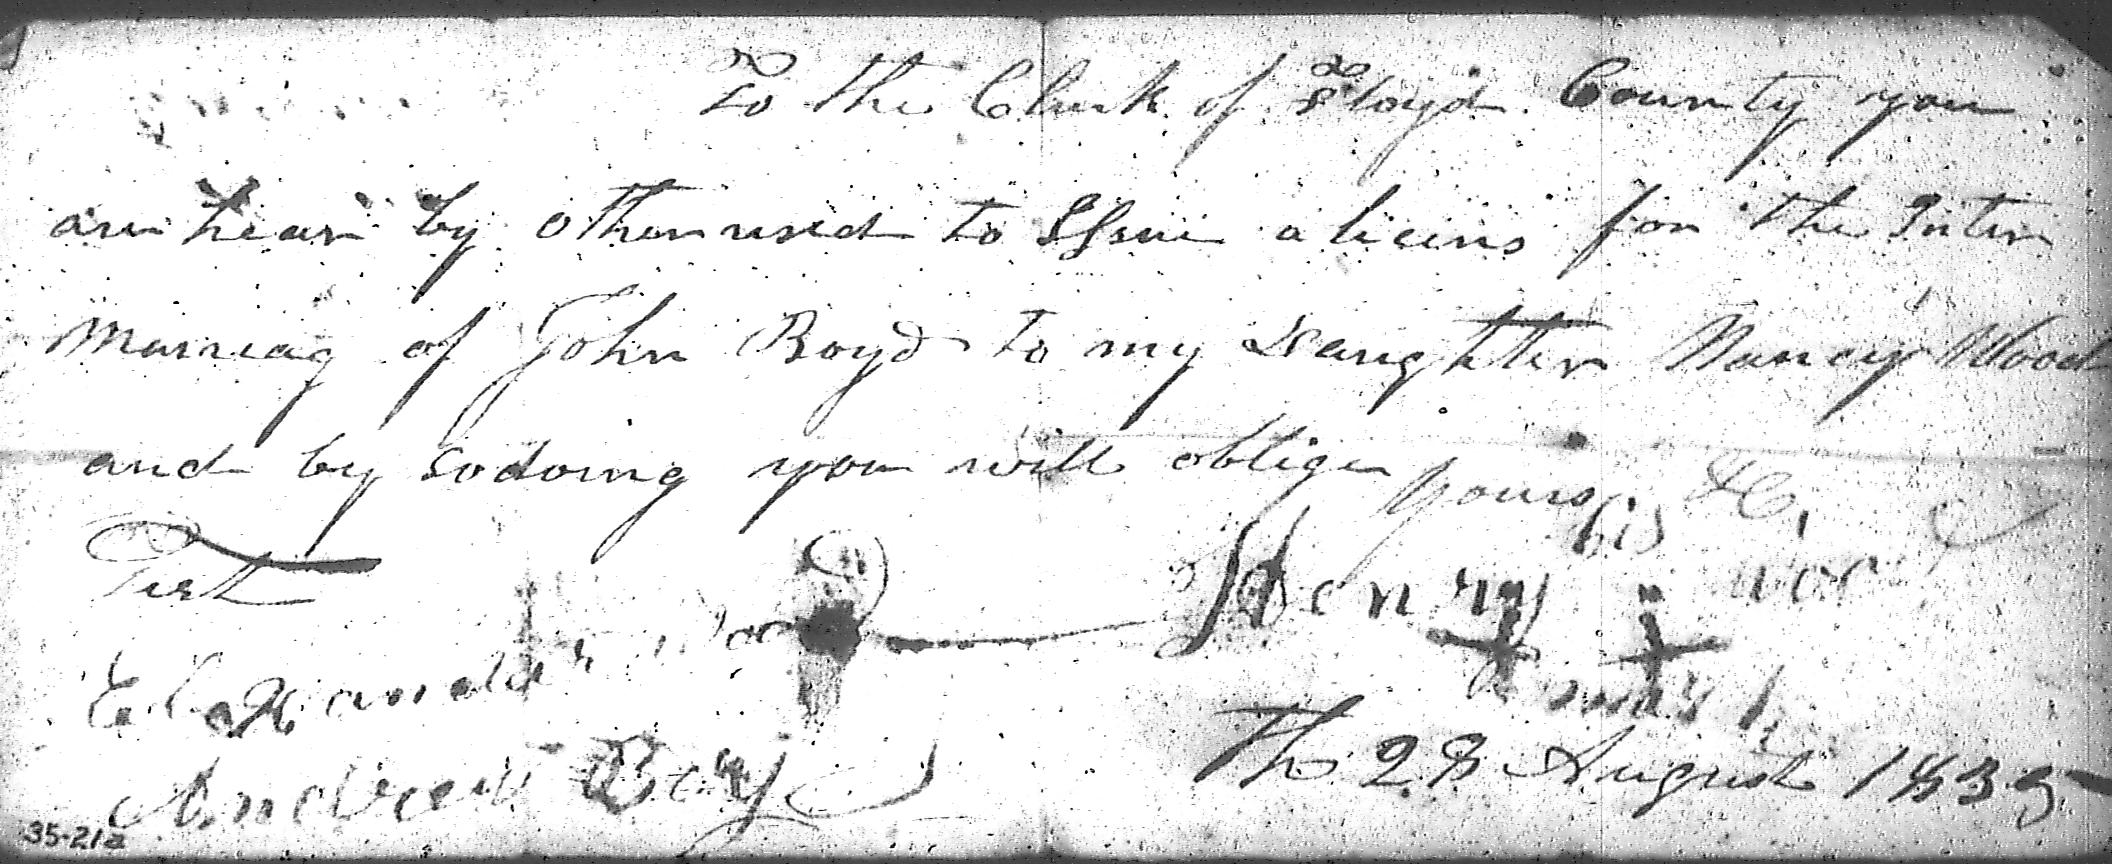 To the Clurk of Floyd County you
are hear by otherused to Issue a licens for the Inter
Marriag of John Boyd to my Daughter Nancy Wood
and by sodoing you will oblige yours &c,
Test
his
Henry wood
Elexander wood
mark
Andrew Boyd
Th 28 August 1835
35-21a